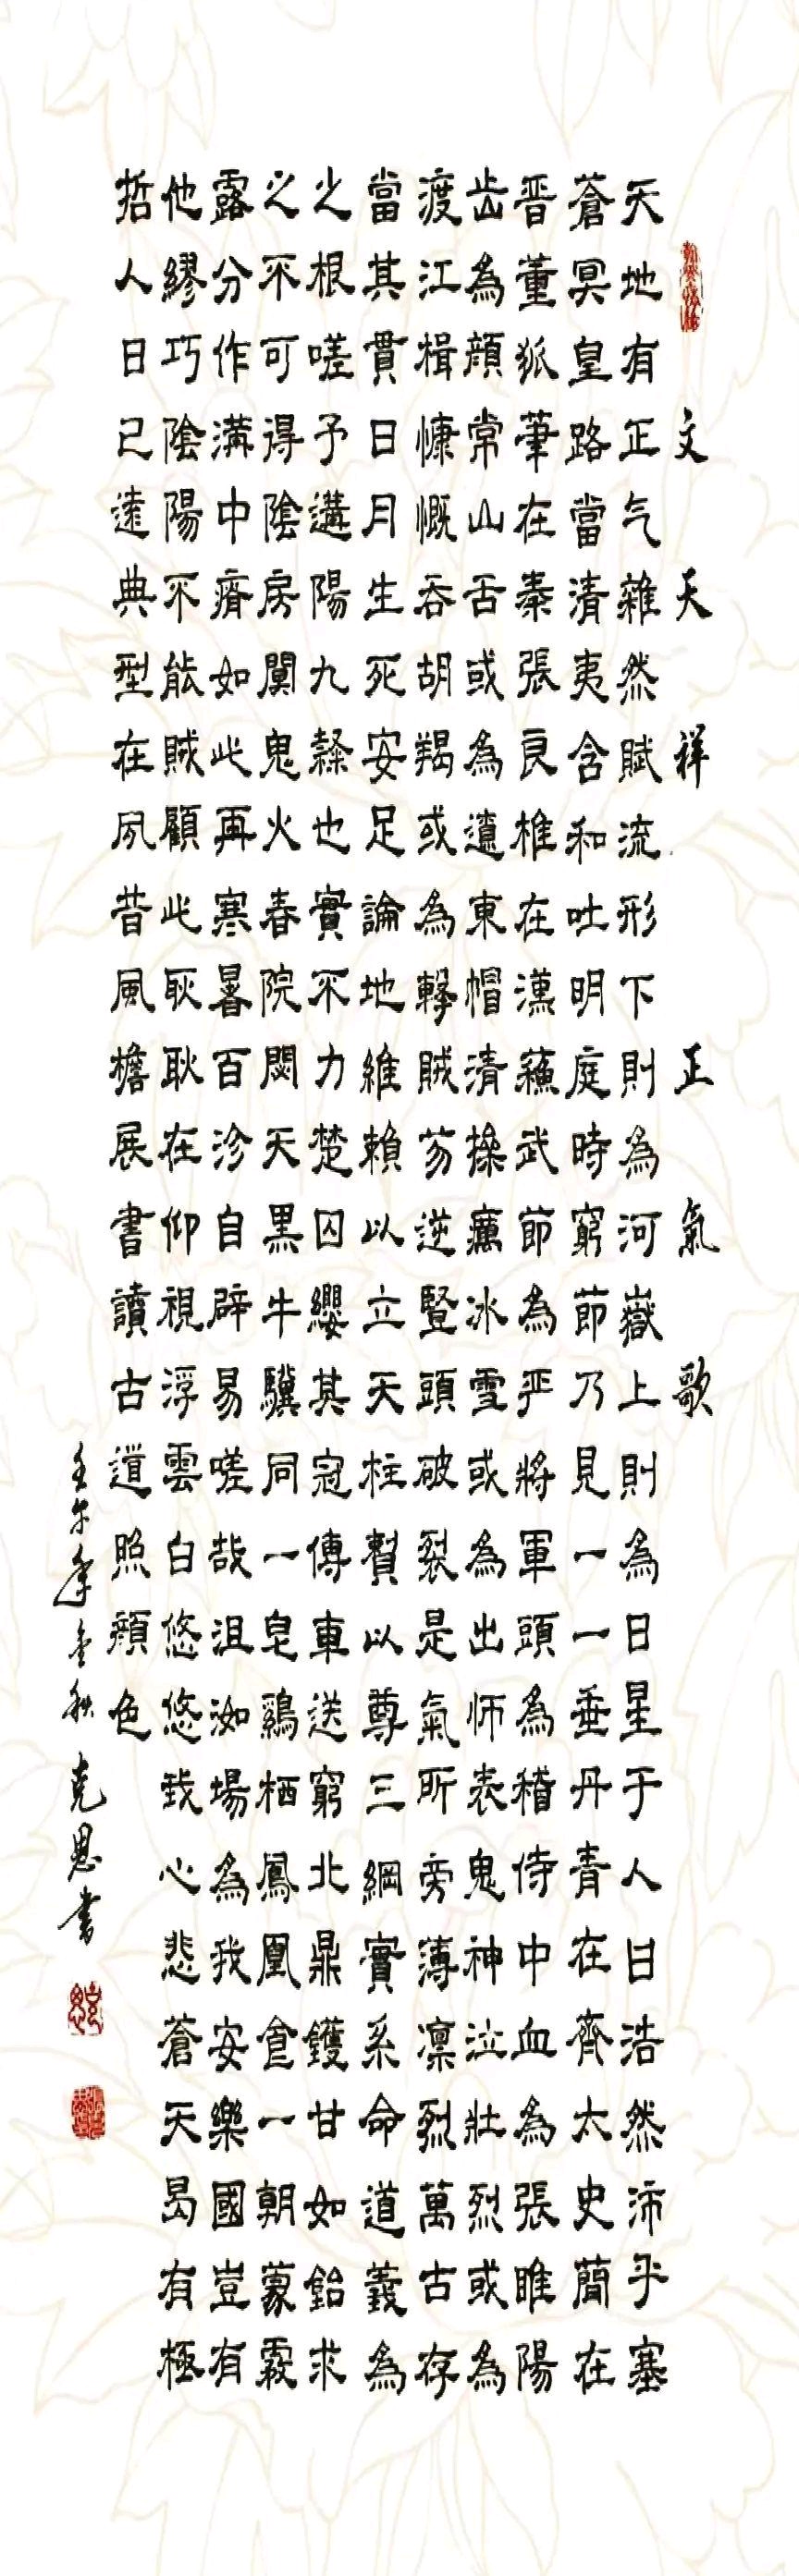 文天祥正氣歌
天地有正气雜然賦流形下則為河嶽上則為日星于人曰浩然沛乎塞
蒼冥皇路當清夷含和吐明庭時窮節乃見一一垂丹青在齊太史簡在
晋董狐筆在秦張良椎在漢蘇武節為严將軍頭為稽侍中血為張睢陽
齿為顔常山舌或為遼東帽清操厲冰雪或為出师表鬼神泣壮烈或為
渡江楫慷慨吞胡羯或為擊賊笏逆豎頭破裂是氣所旁薄凛烈萬古存
當其貫日月生死安足論地維賴以立天柱賛以尊三綱實系命道義為
之根嗟予遘陽九隸也實不力楚囚纓其冠傳車送窮北鼎鑊甘如飴求
之不可得陰房闃鬼火春院閟天黑牛驥同一皂鷄栖鳳凰食一朝蒙霧
露分作溝中瘠如此再寒暑百沴自辟易嗟哉沮洳場為我安樂國豈有
他繆巧陰陽不能賊顧此耿耿在仰視浮雲白悠悠我心悲蒼天曷有極
哲人日已遠典型在夙昔風檐展書讀古道照顔色
壬午年金秋克恩書